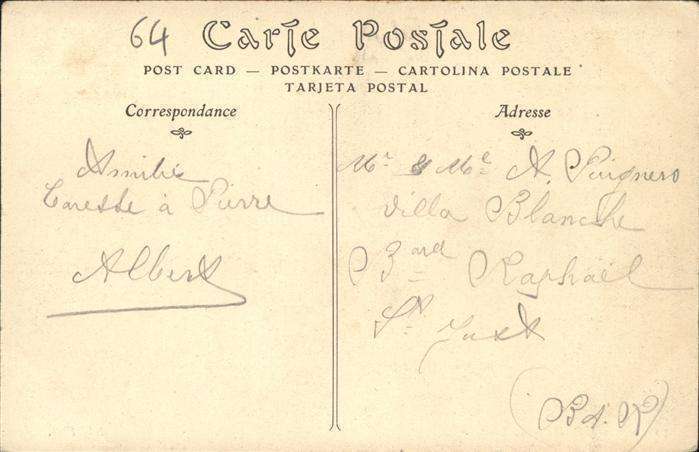 64
Carte Postale
POST CARD — POSTKARTE — CARTOLINA POSTALE
TARJETA POSTAL
Correspondance
Amitié
Caresse à Pierre
Albert
Adresse
Mr & Me A. Puignero
Villa Blanche
Bard Raphaël
St Just
(B d. R)